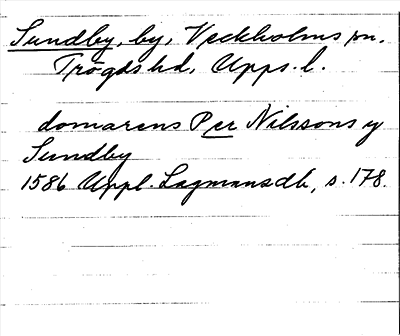 Sundby, by, Veckholms sn.
Trögds hd, Upps. l.
domarens Per Nilssons y
Sundby
1586 Uppl. Lagmansdb, s. 178.